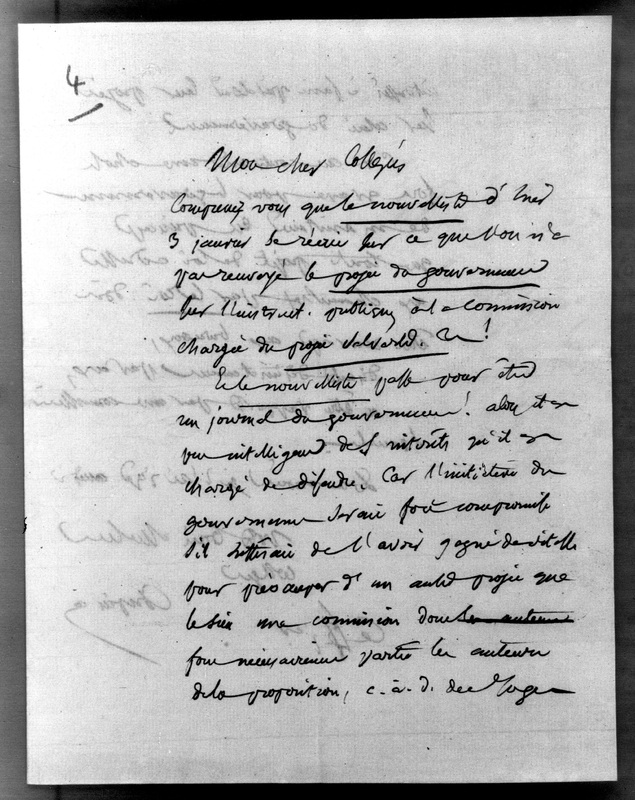 4
Mon cher Collègue
Comprenez vous que le nouvelliste d'hier
3 janvier se récrie sur ce que l'on n'a
pas renvoyé le projet du gouvernement
sur l'instruct. publique à la commission
chargée du projet !
Et le nouvelliste passe pour être
un journal du gouvernement ! alors il est
peu intelligent des intérêts qu'il est
chargé de défendre. Car l'initiative du
gouvernement serait fort compromise
s'il suffisait de l'avoir gagné de vitesse
pour préoccuper d'un autre projet que
le sien une commission dont les auteurs
font nécessairement partie les auteurs
de la proposition, c. à. d. des